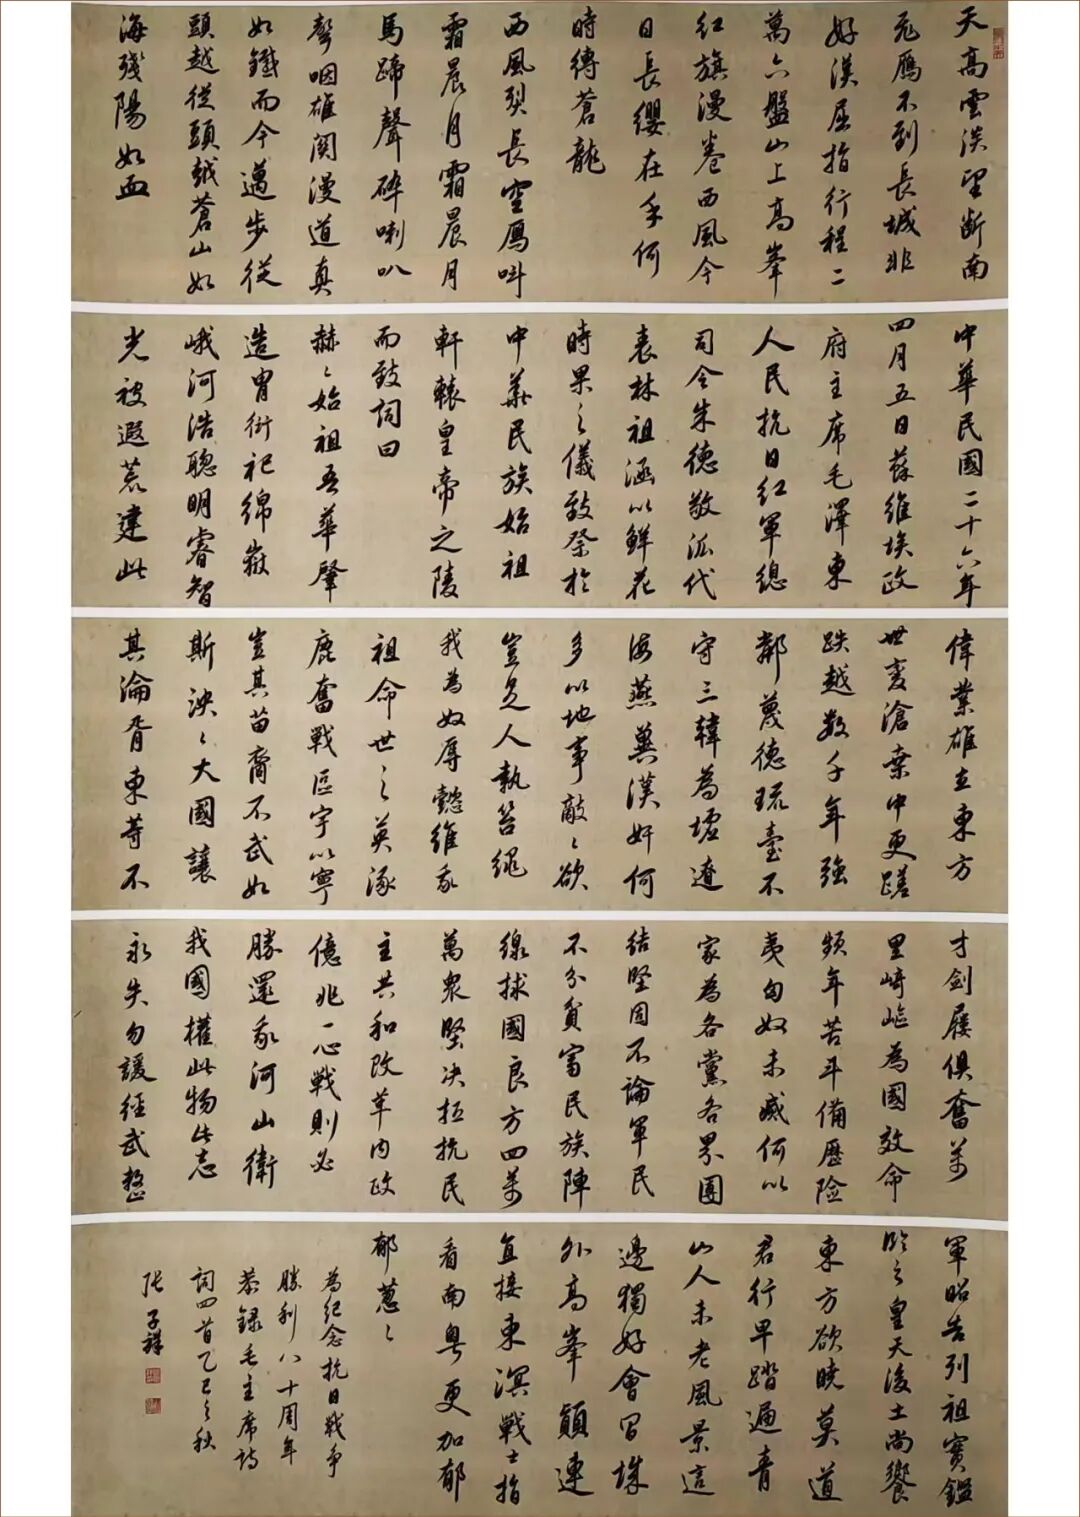 天高雲淡望斷南
飛鴈不到長城非
好漢屈指行程二
萬六盤山上高峯
紅旗漫卷西風今
日長纓在手何
時縛蒼龍
西風烈長空鴈叫
霜晨月霜晨月
馬蹄聲碎喇叭
聲咽雄關漫道真
如鐵而今邁步從
頭越從頭越蒼山如
海殘陽如血
中華民國二十六年
四月五日蘇維埃政
府主席毛澤東
人民抗日紅軍總
司令朱德敬派代
表林祖涵以鮮花
時果之儀致祭於
中華民族始祖
軒轅皇帝之陵
而致詞曰
赫〻始祖吾華肇
造胄衍祀綿嶽
峨河浩聰明睿智
光被遐荒建此
偉業雄立東方
世變滄桑中更蹉
跌越數千年強
鄰蔑德琉臺不
守三韓為墟遼
海燕冀漢奸何
多以地事敵〻欲
豈足人執笞繩
我為奴辱懿維我
祖命世之英涿
鹿奮戰區宇以寧
豈其苗裔不武如
斯泱〻大國讓
其淪胥東等不
才劍屨俱奮萬
里崎嶇為國效命
頻年苦斗備歷險
夷匈奴未滅何以
家為各黨各界團
結堅固不論軍民
不分貧富民族陣
線捄國良方四萬
萬眾堅決抵抗民
主共和改革內政
億兆一心戰則必
勝還我河山衛
我國權此物此志
永矢勿諼經武整
軍昭告列祖實鑑
臨之皇天後土尚饗
東方欲曉莫道
君行早踏遍青
山人未老風景這
邊獨好會昌城
外高峯顛連
直接東溟戰士指
看南粵更加郁
郁蔥〻
為紀念抗日戰爭
勝利八十周年
恭錄毛主席詩
詞四首乙巳之秋
張子祥